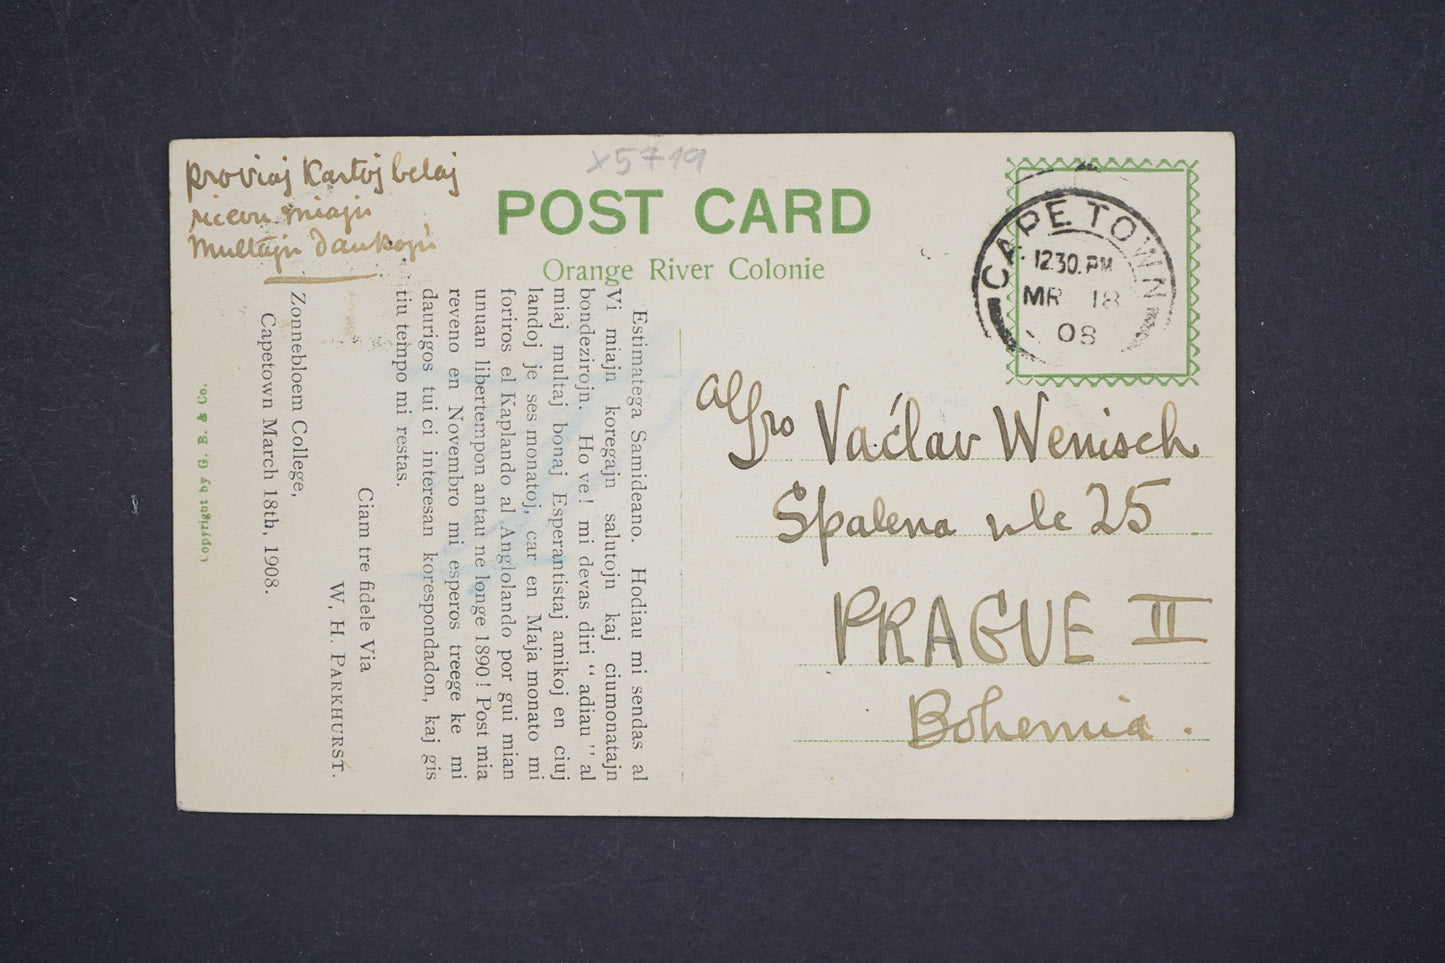 Proviaj Kartoj belaj
ricevu miajn
Multajn dankojn
x5719
POST CARD
Orange River Colonie
CAPETOWN
12.30.PM
MR 18
08
Vaćlav Wenisch
Spalena ulc 25
PRAGUE II
Bohemia.
Estimatega Samideano. Hodiau mi sendas al
Vi miajn koregajn salutojn kaj ciumonatajn
bondezirojn. Ho ve! mi devas diri "adiau" al
miaj multaj bonaj Esperantistaj amikoj en ciuj
landoj je ses monatoj, car en Maja monato mi
foriros el Kaplando al Anglolando por gui mian
unuan libertempon antau ne longe 1890! Post mia
reveno en Novembro mi esperos treege ke mi
daurigos tui ci interesan korespondadon, kaj gis
tiu tempo mi restas.
Ciam tre fidele Via
W. H. PARKHURST.
Zonnebloem College,
Capetown March 18th, 1908.
Copyright by G. B. & Co.